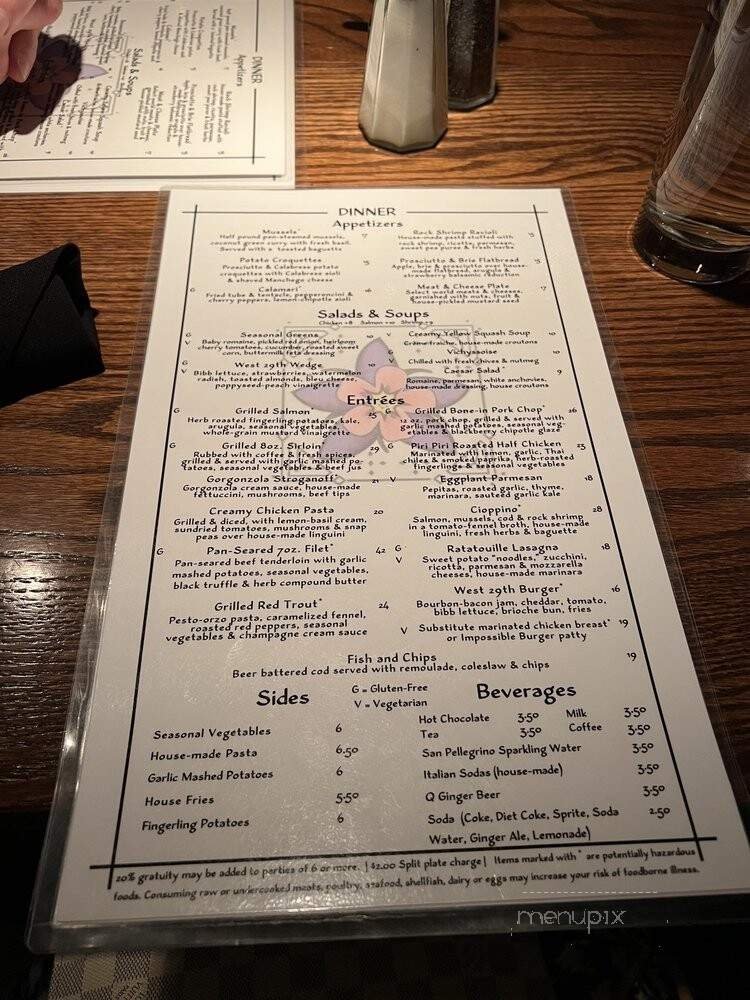 DINNER
Appetizers
Mussels* 7
Half pound pan-steamed mussels,
coconut green curry with fresh basil.
Served with a toasted baguette
Potato Croquettes
Prosciutto & Calabrese potato
croquettes with Calabrese aioli
& shaved Manchego cheese
G Calamari* 16
Fried tube & tentacle, pepperoncini &
cherry peppers, lemon-chipotle aioli
Rock Shrimp Ravioli
House-made pasta stuffed with
rock shrimp, ricotta, parmesan,
sweet pea puree & fresh herbs
Prosciutto & Brie Flatbread
Apple, brie & prosciutto over house-
made flatbread, arugula &
strawberry balsamic reduction
Meat & Cheese Plate 17
Select world meats & cheeses,
garnished with nuts, fruit &
house-pickled mustard seed
Salads & Soups
Chicken +8 Salmon +10 Shrimp +9
G Seasonal Greens 10
V Baby romaine, pickled red onion, heirloom
cherry tomatoes, cucumber, roasted sweet
corn, buttermilk feta dressing
G West 29th Wedge 10
V Bibb lettuce, strawberries, watermelon
radish, toasted almonds, bleu cheese,
poppyseed-peach vinaigrette
V Creamy Yellow Squash Soup 10
Crème fraiche, house-made croutons
G Vichyssoise 10
V Chilled with fresh chives & nutmeg
Caesar Salad* 9
Romaine, parmesan, white anchovies,
house-made dressing, house croutons
Entrées
G Grilled Salmon* 25
Herb roasted fingerling potatoes, kale,
arugula, seasonal vegetables,
whole-grain mustard vinaigrette
G Grilled 8oz. Sirloin* 29
Rubbed with coffee & fresh spices,
grilled & served with garlic mashed po-
tatoes, seasonal vegetables & beef jus
Gorgonzola Stroganoff* 21
Gorgonzola cream sauce, house-made
fettuccini, mushrooms, beef tips
Creamy Chicken Pasta 20
Grilled & diced, with lemon-basil cream,
sundried tomatoes, mushrooms & snap
peas over house-made linguini
G Pan-Seared 7oz. Filet* 42
Pan-seared beef tenderloin with garlic
mashed potatoes, seasonal vegetables,
black truffle & herb compound butter
Grilled Red Trout* 24
Pesto-orzo pasta, caramelized fennel,
roasted red peppers, seasonal
vegetables & champagne cream sauce
G Grilled Bone-in Pork Chop* 26
12 oz. pork chop, grilled & served with
garlic mashed potatoes, seasonal veg-
etables & blackberry chipotle glaze
G Piri Piri Roasted Half Chicken 23
Marinated with lemon, garlic, Thai
chiles & smoked paprika, herb-roasted
fingerlings & seasonal vegetables
V Eggplant Parmesan 18
Pepitas, roasted garlic, thyme,
marinara, sauteed garlic kale
Cioppino* 28
Salmon, mussels, cod & rock shrimp
in a tomato-fennel broth, house-made
linguini, fresh herbs & baguette
G Ratatouille Lasagna 18
V Sweet potato "noodles," zucchini,
ricotta, parmesan & mozzarella
cheeses, house-made marinara
West 29th Burger* 16
Bourbon-bacon jam, cheddar, tomato,
bibb lettuce, brioche bun, fries
V Substitute marinated chicken breast* 19
or Impossible Burger patty
Fish and Chips 19
Beer battered cod served with remoulade, coleslaw & chips
G = Gluten-Free
V = Vegetarian
Sides
Seasonal Vegetables 6
House-made Pasta 6.50
Garlic Mashed Potatoes 6
House Fries 5.50
Fingerling Potatoes 6
Beverages
Hot Chocolate 3.50 Milk 3.50
Tea 3.50 Coffee 3.50
San Pellegrino Sparkling Water 3.50
Italian Sodas (house-made) 3.50
Q Ginger Beer 3.50
Soda (Coke, Diet Coke, Sprite, Soda 2.50
Water, Ginger Ale, Lemonade)
20% gratuity may be added to parties of 6 or more. | $2.00 Split plate charge | Items marked with * are potentially hazardous
foods. Consuming raw or undercooked meats, poultry, seafood, shellfish, dairy or eggs may increase your risk of foodborne illness.
menupix
DINNER
Appetizers
Salads & Soups